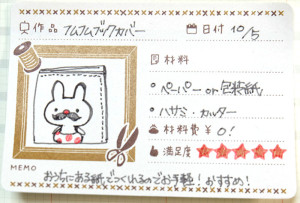 作品 フムフムブックカバー
日付 10/5
材料
・ペーパー or 包装紙
・ハサミ・カッター
材料費 ¥0!
満足度
MEMO
おうちにある紙でつくれるのでお手軽!おすすめ!